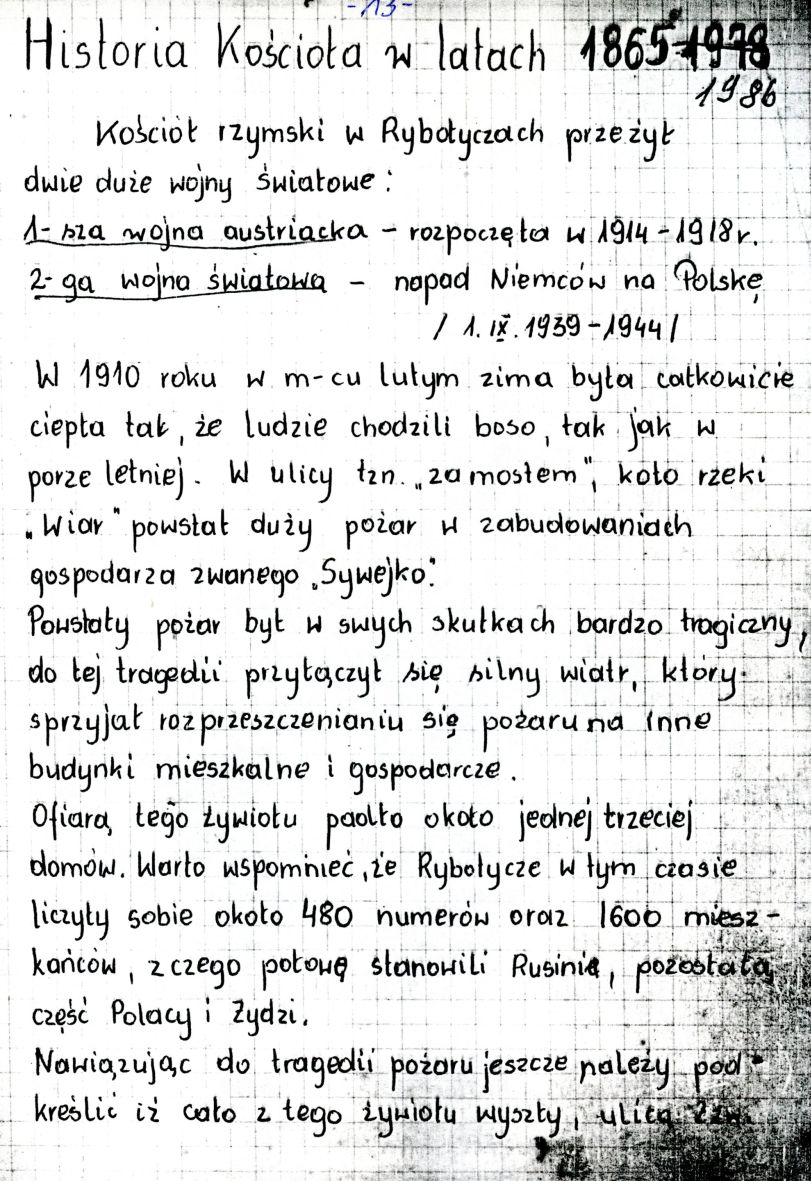 -13-
Historia Kościoła w latach 1865-1978
1986
Kościół rzymski w Rybotyczach przeżył
dwie duże wojny światowe:
1-sza wojna austriacka - rozpoczęta w 1914-1918r.
2-ga wojna światowa - napad Niemców na Polskę
/ 1. IX. 1939-1944/
W 1910 roku w m-cu lutym zima była całkowicie
ciepła tak, że ludzie chodzili boso, tak jak w
porze letniej. W ulicy tzn. „za mostem", koło rzeki
„Wiar" powstał duży pożar w zabudowaniach
gospodarza zwanego „Sywejko".
Powstały pożar był w swych skutkach bardzo tragiczny,
do tej tragedii przyłączył się silny wiatr, który
sprzyjał rozprzeszczenianiu się pożaru na inne
budynki mieszkalne i gospodarcze.
Ofiarą tego żywiołu padło około jednej trzeciej
domów. Warto wspomnieć, że Rybotycze w tym czasie
liczyły sobie około 480 numerów oraz 1600 miesz-
kańców, z czego połowę stanowili Rusinie, pozostałą
część Polacy i Żydzi.
Nawiązując do tragedii pożaru jeszcze należy pod-
kreślić iż cało z tego żywiołu wyszły, ulica